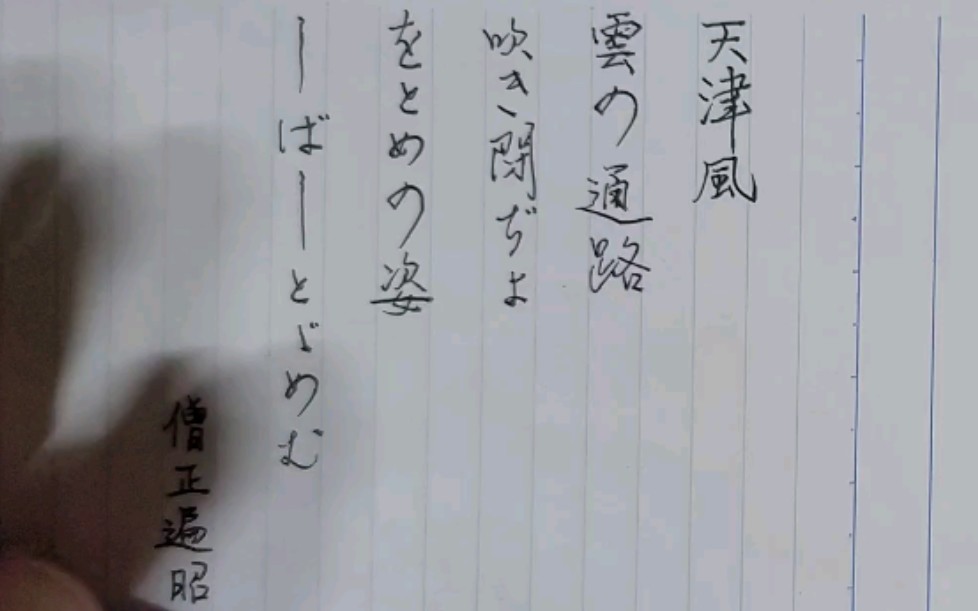 天津風
雲の通路
吹き閉ぢよ
をとめの姿
しばしとゞめむ
僧正遍昭